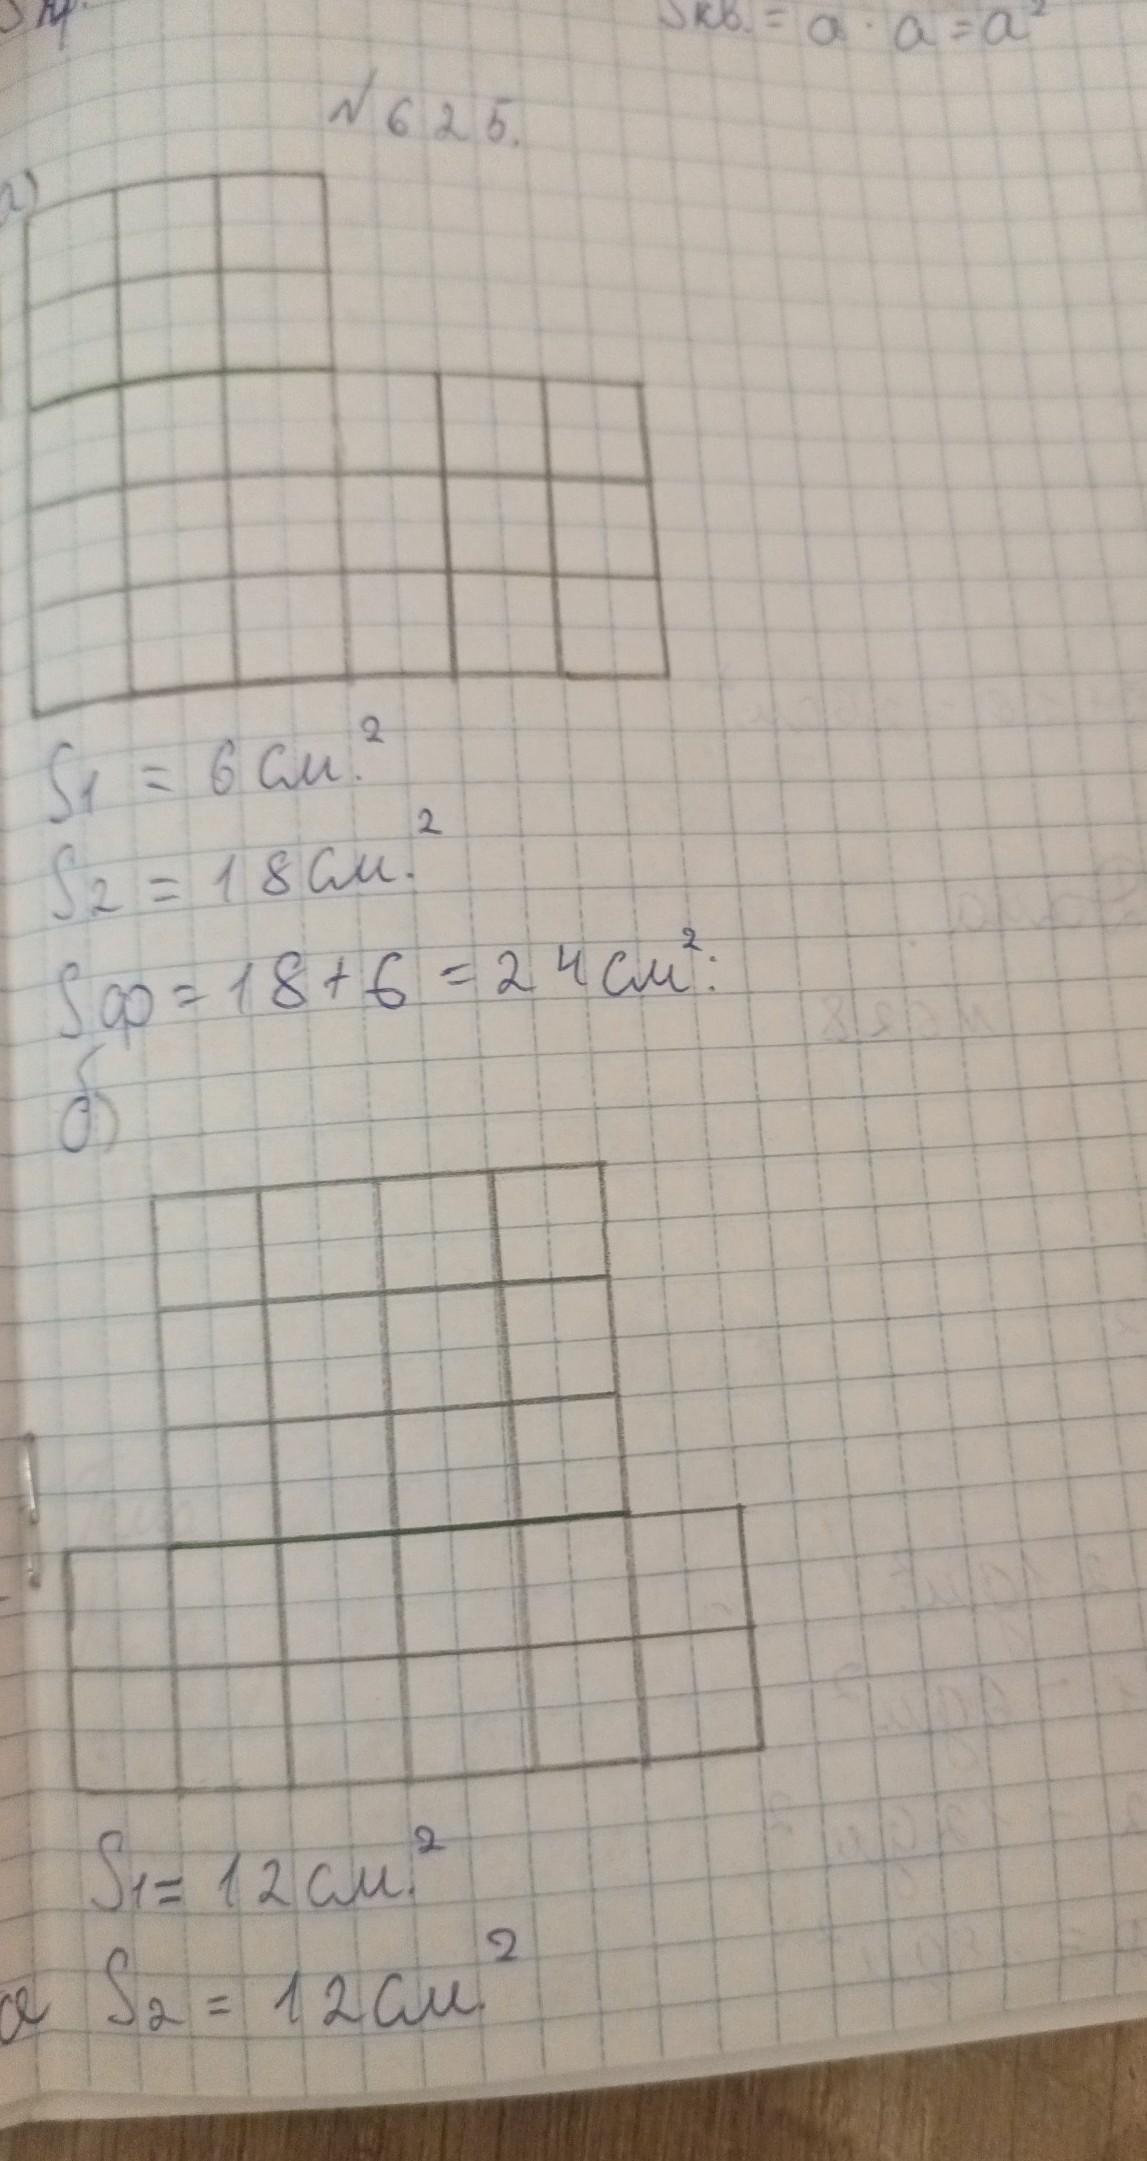 Sкв. = a · a = a²
№ 625.
а)
S1 = 6 см.²
S2 = 18 см.²
Sф = 18 + 6 = 24 см².
б)
S1 = 12 см.²
S2 = 12 см.²